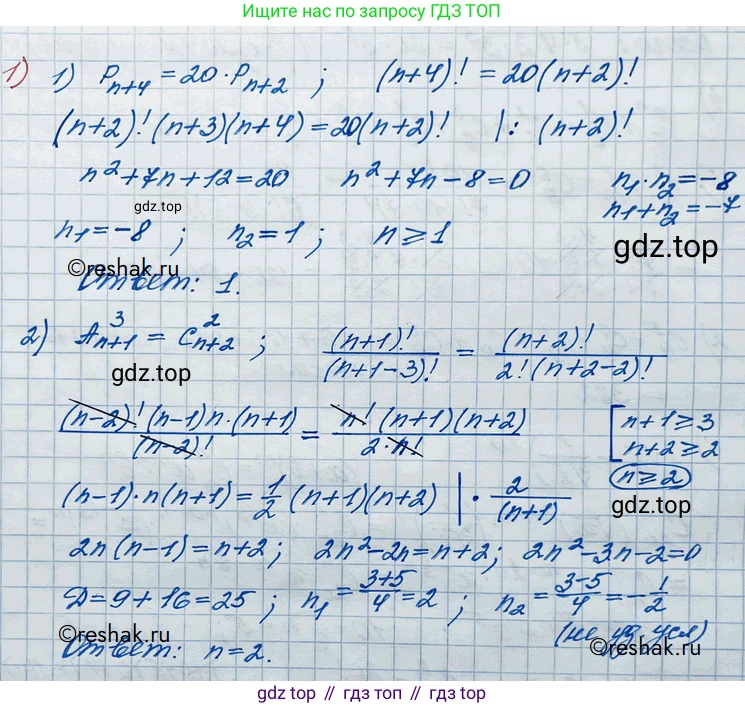 Ищите нас по запросу ГДЗ ТОП
1) 1) P_{n+4} = 20 · P_{n+2} ; (n+4)! = 20(n+2)!
(n+2)! (n+3)(n+4) = 20(n+2)! |: (n+2)!
n² + 7n + 12 = 20 n² + 7n − 8 = 0 n₁ · n₂ = −8
gdz.top n₁ + n₂ = −7
n₁ = −8 ; n₂ = 1 ; n ≥ 1 gdz.top
©reshak.ru
Ответ: 1.
2) A³_{n+1} = C²_{n+2} ; (n+1)!/(n+1−3)! = (n+2)!/2!(n+2−2)!
gdz.top
(n−2)! (n−1) n · (n+1)/(n−2)! = n! (n+1)(n+2)/2 · n! [n+1 ≥ 3
n+2 ≥ 2
n ≥ 2
(n−1) · n(n+1) = 1/2 (n+1)(n+2) | · 2/(n+1) gdz.top
2n(n−1) = n+2 ; 2n² − 2n = n+2 ; 2n² − 3n − 2 = 0
Д = 9 + 16 = 25 ; n₁ = 3+5/4 = 2 ; n₂ = 3−5/4 = −1/2
©reshak.ru (не уд. усл)
Ответ: n = 2. ©reshak.ru
gdz top // гдз топ // gdz.top